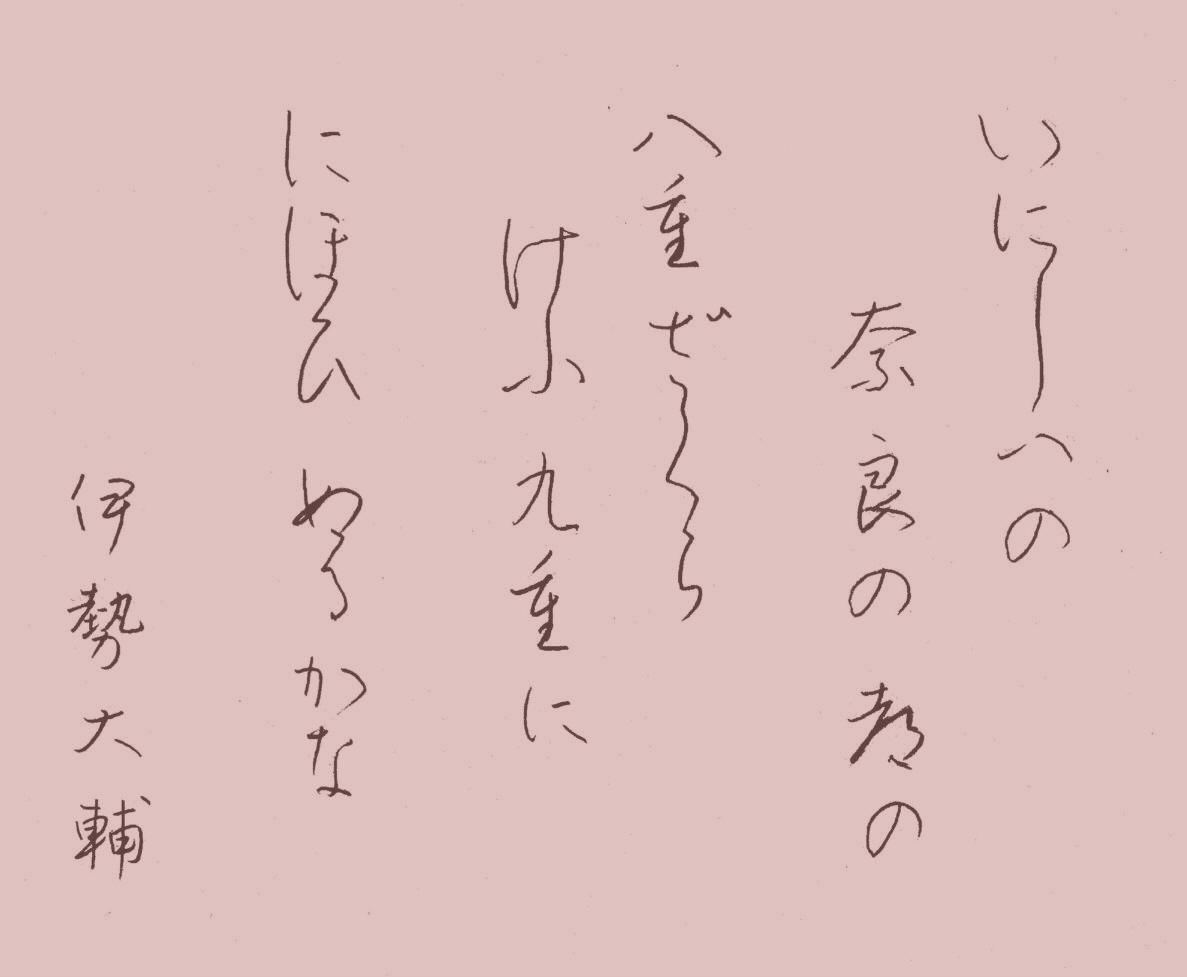 いにしへの
奈良の都の
八重ざくら
けふ九重に
にほひぬるかな
伊勢大輔